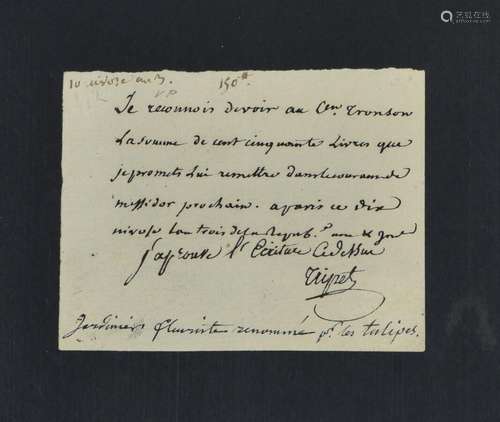 10 nivose an 3. 150#
V.P
Je reconnois devoir au Cen. Tronson
La Somme de cent cinquante Livres que
je promets Lui remettre dans le courant de
messidor prochain. a paris ce dix
nivose L'an trois de la Repub.
J'aprouve l'Ecriture Cy dessus
Tripet
Jardinier fleuriste renommé pr. les tulipes.